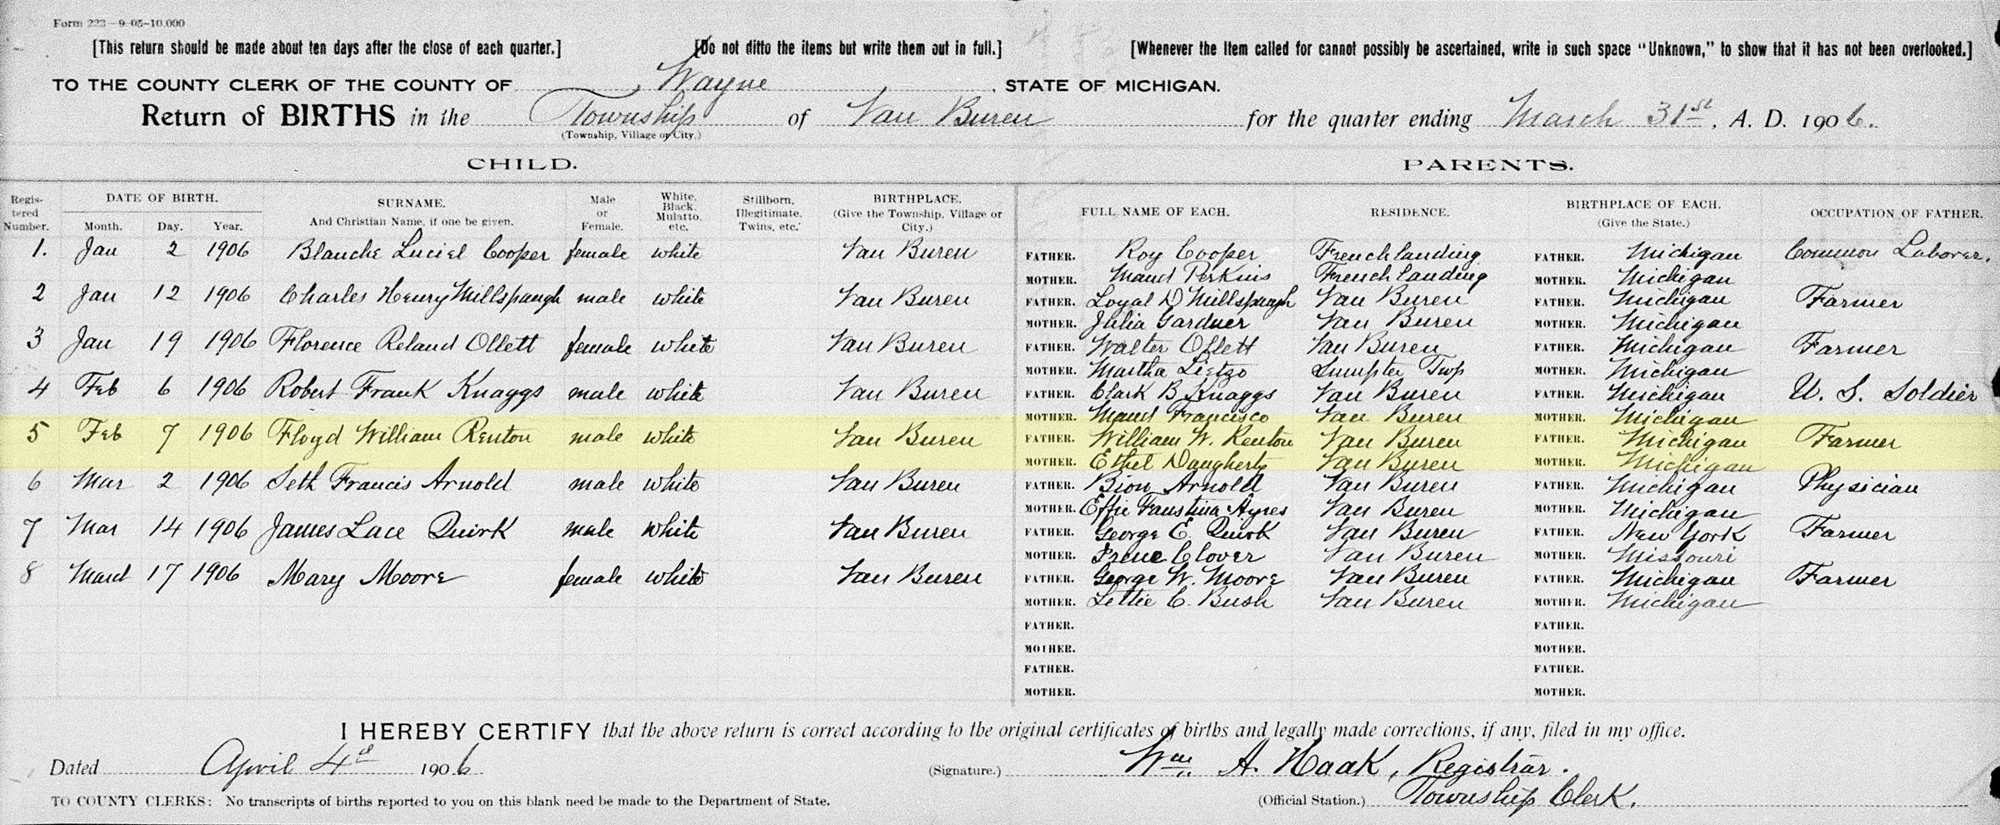 Form 223—9-05-10,000
[This return should be made about ten days after the close of each quarter.] [Do not ditto the items but write them out in full.] [Whenever the item called for cannot possibly be ascertained, write in such space "Unknown," to show that it has not been overlooked.]
TO THE COUNTY CLERK OF THE COUNTY OF Wayne, STATE OF MICHIGAN.
Return of BIRTHS in the Township of Van Buren for the quarter ending March 31st, A. D. 1906.
(Township, Village or City.)
CHILD. PARENTS.
Registered Number. DATE OF BIRTH. Month. Day. Year. SURNAME. And Christian Name, if one be given. Male or Female. White, Black, Mulatto, etc. Stillborn, Illegitimate, Twins, etc. BIRTHPLACE. (Give the Township, Village or City.) FULL NAME OF EACH. RESIDENCE. BIRTHPLACE OF EACH. (Give the State.) OCCUPATION OF FATHER.
1. Jan 2 1906 Blanche Luciel Cooper female white Van Buren FATHER. Roy Cooper Frenchlanding FATHER. Michigan Common Laborer.
MOTHER. Maud Perkins Frenchlanding MOTHER. Michigan
2 Jan 12 1906 Charles Henry Millspaugh male white Van Buren FATHER. Loyal D Millspaugh Van Buren FATHER. Michigan Farmer
MOTHER. Julia Gardner Van Buren MOTHER. Michigan
3 Jan 19 1906 Florence Reland Ollett female white Van Buren FATHER. Walter Ollett Van Buren FATHER. Michigan Farmer
MOTHER. Martha Lietzo Sumpter Twp MOTHER. Michigan
4 Feb 6 1906 Robert Frank Knaggs male white Van Buren FATHER. Clark B Knaggs Van Buren FATHER. Michigan U. S. Soldier
MOTHER. Maud Francisco Van Buren MOTHER. Michigan
5 Feb 7 1906 Floyd William Renton male white Van Buren FATHER. William W. Renton Van Buren FATHER. Michigan Farmer
MOTHER. Ethel Daugherty Van Buren MOTHER. Michigan
6 Mar 2 1906 Seth Francis Arnold male white Van Buren FATHER. Bion Arnold Van Buren FATHER. Michigan Physician
MOTHER. Effie Faustina Ayres Van Buren MOTHER. Michigan
7 Mar 14 1906 James Lace Quirk male white Van Buren FATHER. George E. Quirk Van Buren FATHER. New York Farmer
MOTHER. Irene Clover Van Buren MOTHER. Missouri
8 March 17 1906 Mary Moore female white Van Buren FATHER. George W. Moore Van Buren FATHER. Michigan Farmer
MOTHER. Lettie C. Bush Van Buren MOTHER. Michigan
FATHER. FATHER.
MOTHER. MOTHER.
FATHER. FATHER.
MOTHER. MOTHER.
I HEREBY CERTIFY that the above return is correct according to the original certificates of births and legally made corrections, if any, filed in my office.
Dated April 4th 1906 (Signature.) Wm. A. Haak, Registrar.
TO COUNTY CLERKS: No transcripts of births reported to you on this blank need be made to the Department of State. (Official Station.) Township Clerk.